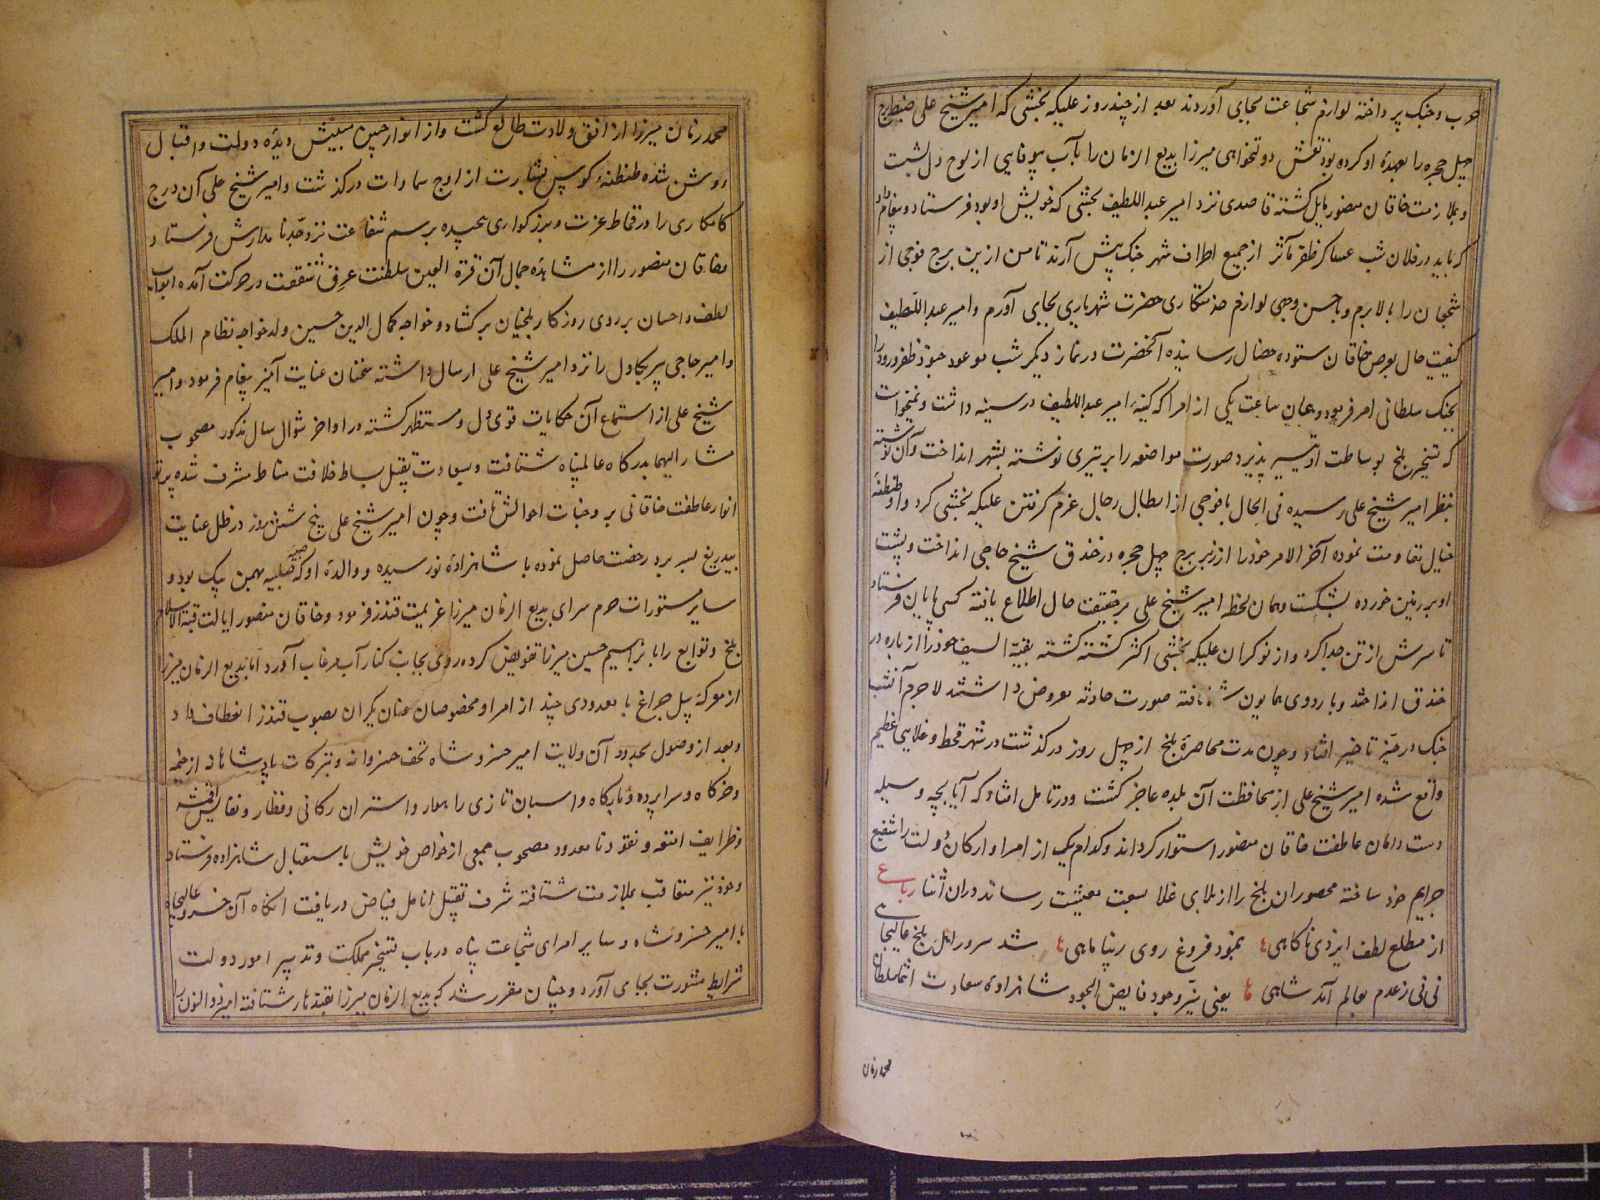 حرب و جنک پرداخته لوازم شجاعت بجای آوردند بعد از چند روز علیکه بخشی که امیر شیخ علی ضبط برج
چهل حجره را بعهدهٔ او کرده بود نقش دولتخواهی میرزا بدیع الزمان را بآب بیوفایی از لوح دل بشست
و بملازمت خاقان منصور مایل کشته قاصدی نزد امیر عبد اللطیف بخشی که خویش او بود فرستاد و پیغام داد
که باید در فلان شب عساکر ظفر مآثر از جمیع اطراف شهر جنک پیش آرند تا من ازین برج فوجی از
شجعان را بالا برم و باحسن وجهی لوازم خدمتکاری حضرت شهریاری بجای آورم و امیر عبد اللطیف
کیفیت حال بعرض خاقان ستوده خصال رسانیده آنحضرت در نماز دیکر شب موعود جنود ظفر ورود را
بجنک سلطانی امر فرمود و همان ساعت یکی از امرا که کینهٔ امیر عبد اللطیف در سینه داشت و نمیخواست
که تسخیر بلخ بوساطت او تیسیر پذیرد صورت مواضعه را بر تیری نوشته بشهر انداخت و آن نوشته
بنظر امیر شیخ علی رسیده فی الحال با فوجی از ابطال رجال عزم کرفتن علیکه بخشی کرد و او
خیال مقاومت نموده آخر الامر خود را از زبر برج چهل حجره در خندق شیخ حاجی انداخت و پشت
او بر زمین خورده بشکست و همان لحظه امیر شیخ علی بر حقیقت حال اطلاع یافته کسی پایان فرستاد
تا سرش از تن جدا کرد و از نوکران علیکه بخشی اکثر کشته کشته بقیة السیف خود را از باره در
خندق انداختند و باردوی همایون شتافته صورت حادثه معروض داشتند لا جرم آنشب
جنک در حیز تاخیر افتاد و چون مدت محاصرهٔ بلخ از چهل روز درکذشت در شهر قحط و غلایی عظیم
واقع شده امیر شیخ علی از محافظت آن بلده عاجز کشت و در تامل افتاد که آیا بچه وسیله
دست در دامان عاطفت خاقان منصور استوار کرداند و کدام یک از امرا و ارکان دولت را شفیع
جرایم خود ساخته محصوران بلخ را از بلای غلا بسعت معیشت رساند در آن اثنا رباعی
از مطلع لطف ایزدی ناکاهی ع بنمود فروغ روی زیبا ماهی ع شد سرور اهل بلخ عالیجاهی
نی نی ز عدم بعالم آمد شاهی ع یعنی نیر وجود فایض الجود شاهزادهٔ سعادت انتما سلطان
محمد زمان
محمد زمان میرزا از افق ولادت طالع کشت و از انوار جبین مبینش دیدهٔ دولت و اقبال
روشن شده طنطنهٔ کوس بشارت از اوج سماوات درکذشت و امیر شیخ علی آن درج
کامکاری را در قماط عزت و بزرکواری پیچیده برسم شفاعت نزد جد نامدارش فرستاد
خاقان منصور را از مشاهدهٔ جمال آن قرة العین سلطنت عرق شفقت در حرکت آمده ابواب
لطف و احسان بر روی روزکار بلخیان برکشاد و خواجه کمال الدین حسین ولد خواجه نظام الملک
و امیر حاجی پیر بکاول را نزد امیر شیخ علی ارسال داشته سخنان عنایت آمیز پیغام فرمود و امیر
شیخ علی از استماع آن حکایات قوی دل و مستظهر کشته در اواخر شوال سال مذکور مصحوب
مشار الیهما بدرکاه عالمپناه شتافت و بسعادت تقبیل بساط خلافت مناط مشرف شده پرتو
انوار عاطفت خاقانی بر وجنات احوالش تافت و چون امیر شیخ علی پنج شش روز در ظل عنایت
بیدریغ بسر برد رخصت حاصل نموده با شاهزادهٔ نورسیده و والدهٔ او که صبیهٔ تهمتن بیک بود و
سایر مستورات حرم سرای بدیع الزمان میرزا عزیمت قندز فرمود و خاقان منصور ایالت قبة الاسلام
بلخ و توابع را بابراهیم حسین میرزا تفویض کرده روی بجانب کنار آب مرغاب آورد اما بدیع الزمان میرزا
از معرکهٔ پل چراغ با معدودی چند از امرا و مخصوصان عنان یکران بصوب قندز انعطاف داد
و بعد از وصول بحدود آن ولایت امیر خسرو شاه تحف خسروانه و تبرکات پادشاهانه از خیمه
و خرکاه و سراپرده و بارکاه و اسبان تازی راهوار و استران رکابی و قطار و نفایس اقمشه
و ظرایف امتعه و نقود نامعدود مصحوب جمعی از خواص خویش باستقبال شاهزاده فرستاد
و خود نیز متعاقب بملازمت شتافته شرف تقبیل انامل فیاض دریافت آنکاه آن خسرو عالیجاه
با امیر خسرو شاه و سایر امرای شجاعت پناه در باب تسخیر مملکت و تدبیر امور دولت
شرایط مشورت بجای آورد و چنان مقرر شد که بدیع الزمان میرزا بقندهار شتافته امیر ذو النون را